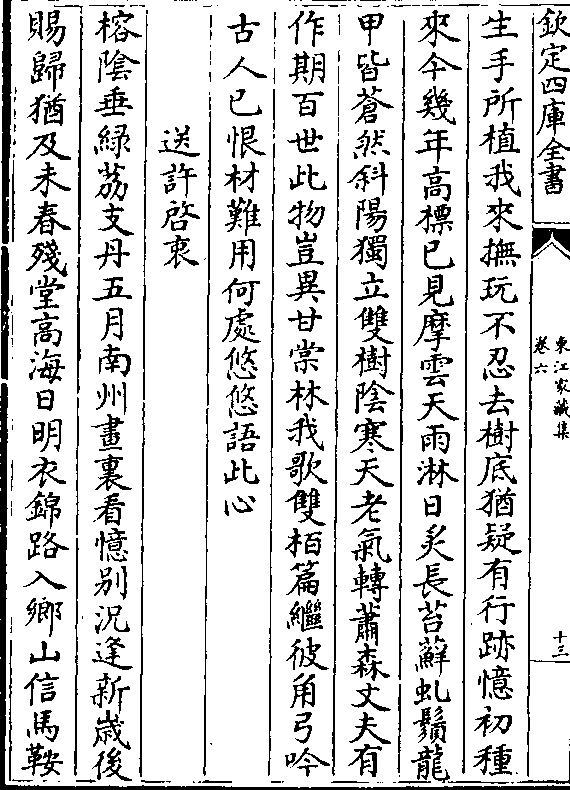 欽定四庫全書
東江家藏集
卷六
十三
生手所植我來撫玩不忍去樹底猶疑有行跡憶初種
來今幾年高標已見摩雲天雨淋日炙長苔蘚虬鬚龍
甲皆蒼然斜陽獨立雙樹陰寒天老氣轉蕭森丈夫有
作期百世此物豈異甘棠林我歌雙栢篇繼彼角弓吟
古人已恨材難用何處悠悠語此心
送許啓衷
榕陰垂緑荔支丹五月南州畫裏看憶别況逢新歲後
賜歸猶及未春殘堂高海日明衣錦路入鄉山信馬鞍